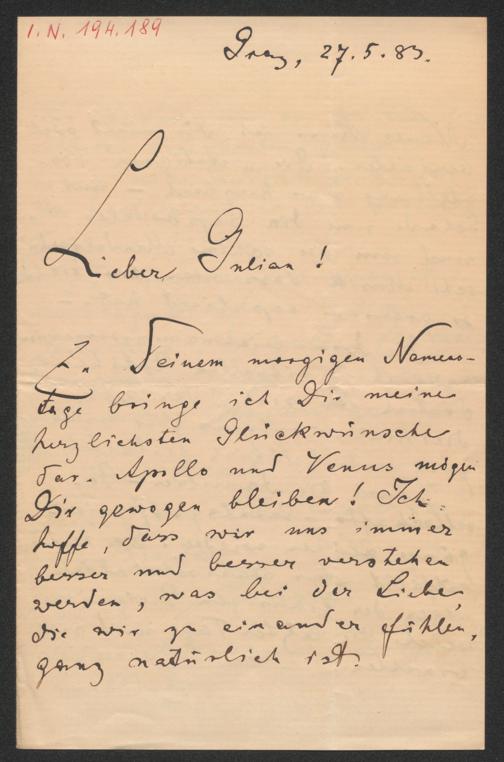 I.N. 194.189
Graz, 27.5.83.
Lieber Julian!
Zu Deinem morgigen Namens-
tage bringe ich Dir meine
herzlichsten Glückwünsche
dar. Apollo und Venus mögen
Dir gewogen bleiben! Ich
hoffe, dass wir uns immer
besser und besser verstehen
werden, was bei der Liebe,
die wir zu einander fühlen,
ganz natürlich ist.